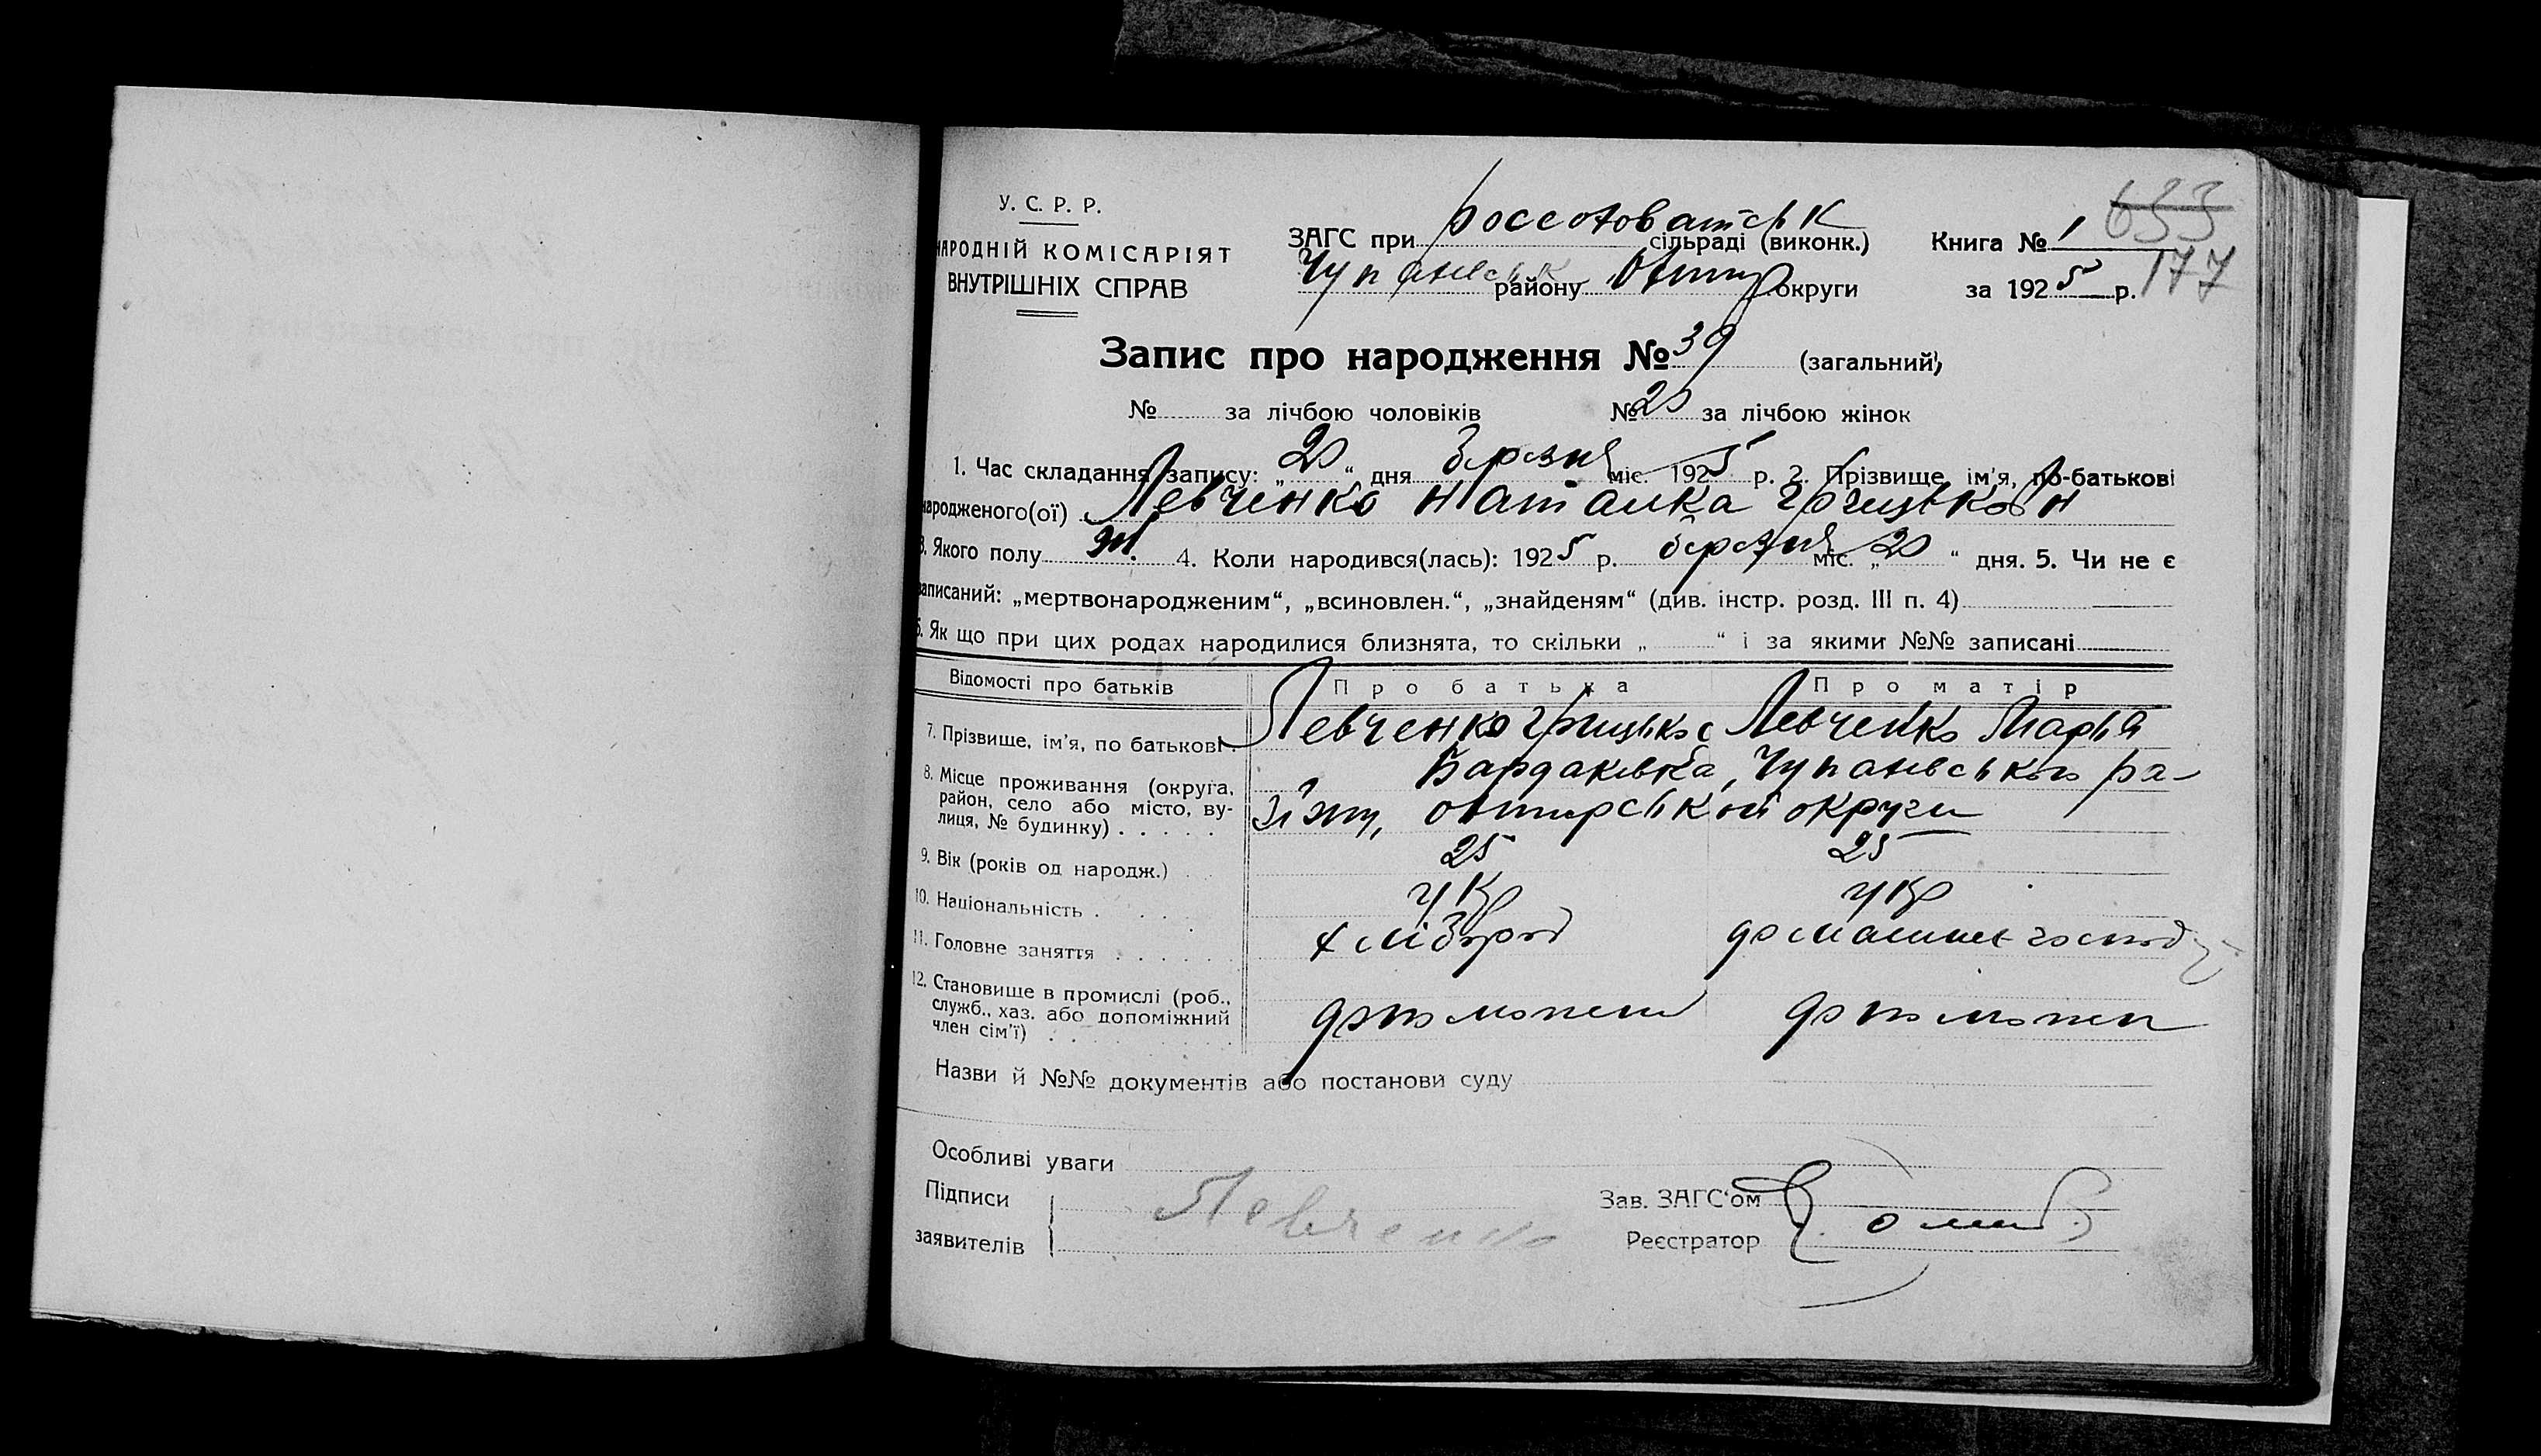 У. С. Р. Р.
НАРОДНІЙ КОМІСАРІЯТ
ВНУТРІШНІХ СПРАВ
ЗАГС при сільраді (виконк.)
району Охтир округи
Книга № 1
653
177
за 1925 р.
Запис про народження № 39 (загальний)
№ за лічбою чоловіків № 20 за лічбою жінок
1. Час складання запису: „20“ дня березня міс. 1925 р. 2. Прізвище, ім'я, по-батькові
народженого(ої) Левченко Наталка Грицьковн
3. Якого полу ж. 4. Коли народився(лась): 1925 р. березня міс. „20“ дня. 5. Чи не є
записаний: „мертвонародженим“, „всиновлен.“, „знайденям“ (див. інстр. розд. III п. 4)
6. Як що при цих родах народилися близнята, то скільки „ “ і за якими №№ записані
Відомості про батьків Про батька Про матір
7. Прізвище, ім'я, по батькові Левченко Грицько Левченко Марія
8. Місце проживання (округа, район, село або місто, вулиця, № будинку) Бардаківка, Чупахівського ра-
охтирської округи
9. Вік (років од народж.) 25 25
10. Національність укр укр
11. Головне заняття хлібороб домашнє господ
12. Становище в промислі (роб., служб., хаз. або допоміжний член сім'ї)
Назви й №№ документів або постанови суду
Особливі уваги
Підписи
заявителів
Левченко
Зав. ЗАГС'ом
Реєстратор